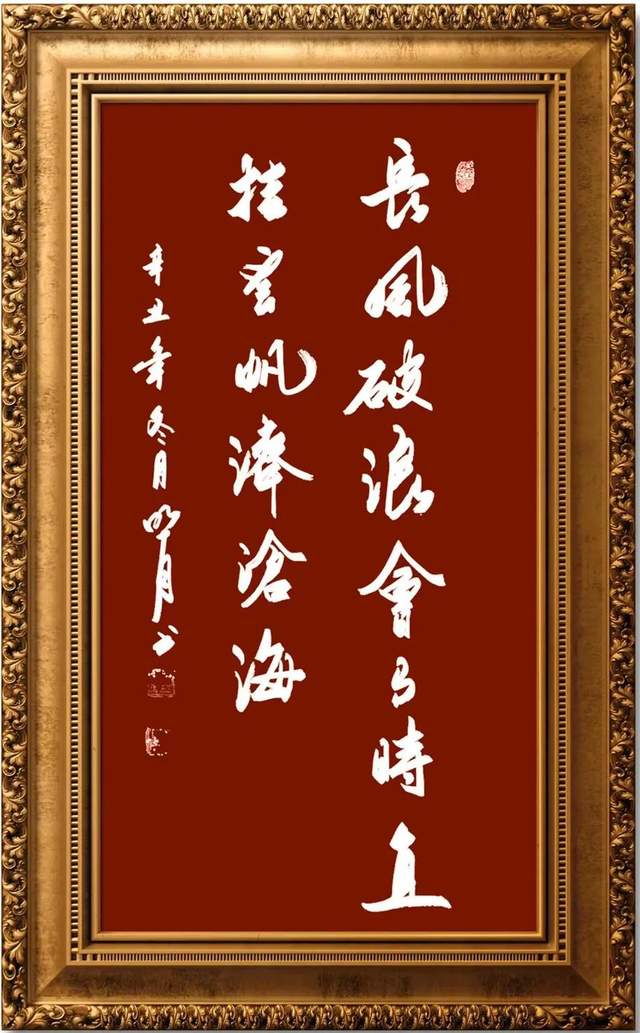 長風破浪會有時直
挂雲帆濟滄海
辛丑年冬月明月书